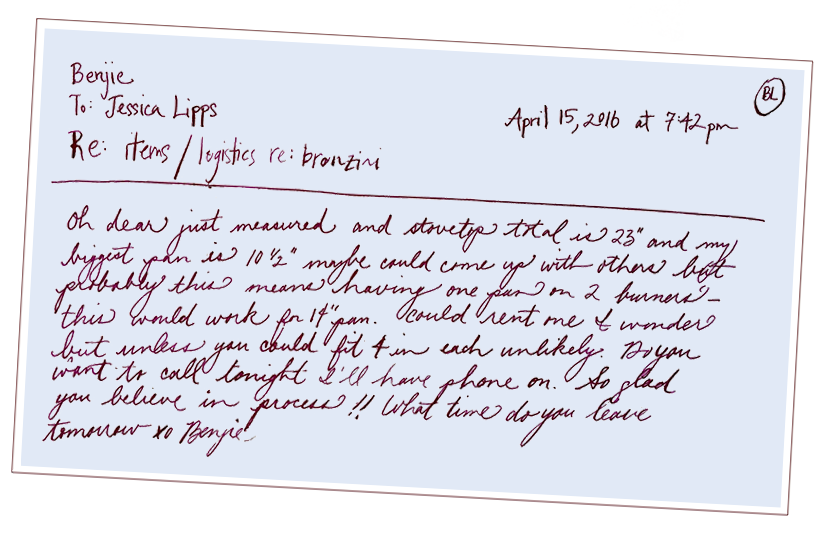 Benjie
BL
To: Jessica Lipps
April 15, 2016 at 7:42pm
Re: items / logistics re: bronzini
Oh dear just measured and stovetop total is 23" and my
biggest pan is 10 1/2" maybe could come up with others but
probably this means having one pan on 2 burners –
this would work for 14" pan. Could rent one I wonder
but unless you could fit 4 in each unlikely. Do you
want to call tonight I'll have phone on. So glad
you believe in process!! What time do you leave
tomorrow xo Benjie